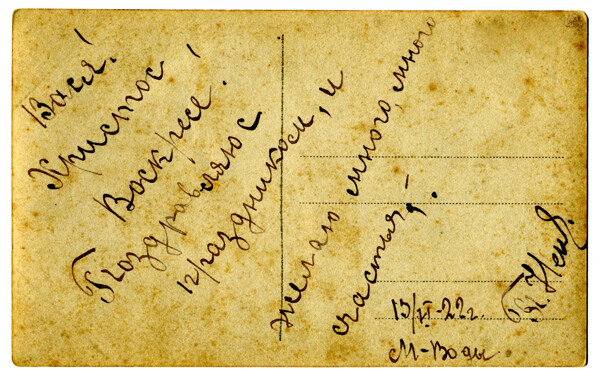 Вася!
Христос
Воскресе!
Поздравляю с
праздником, и
желаю много, много
счастья!
13/VI-22г.
М-Воды